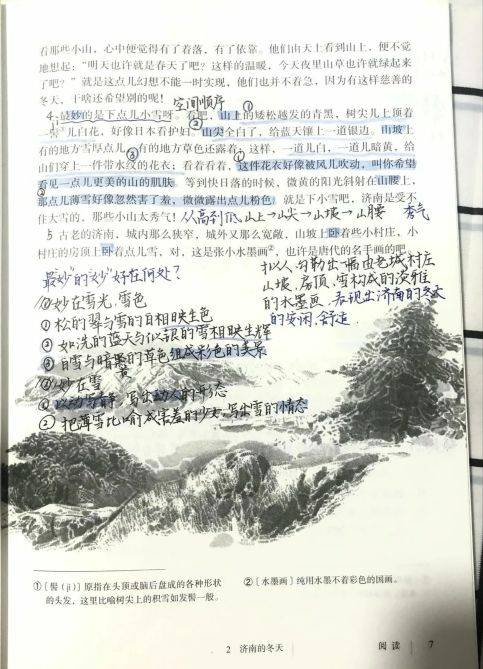 看那些小山，心中便觉得有了着落，有了依靠。他们由天上看到山上，便不觉
地想起：“明天也许就是春天了吧？这样的温暖，今天夜里山草也许就绿起来
了吧？”就是这点儿幻想不能一时实现，他们也并不着急，因为有这样慈善的
冬天，干啥还希望别的呢！
空间顺序
4 最妙的是下点儿小雪呀。看吧，①山上的矮松越发的青黑，树尖儿上顶着
一髻儿白花，好像日本看护妇。②山尖全白了，给蓝天镶上一道银边。山坡上，
有的地方雪厚点儿，③有的地方草色还露着；这样，一道儿白，一道儿暗黄，给
山们穿上一件带水纹的花衣；看着看着，这件花衣好像被风儿吹动，叫你希望
看见一点儿更美的山的肌肤。等到快日落的时候，微黄的阳光斜射在山腰上，
那点儿薄雪好像忽然害了羞，微微露出点儿粉色。就是下小雪吧，济南是受不
住大雪的，那些小山太秀气！从高到低，山上→山尖→山坡→山腰 秀气
5 古老的济南，城内那么狭窄，城外又那么宽敞，山坡上卧着些小村庄，小
村庄的房顶上卧着点儿雪，对，这是张小水墨画②，也许是唐代的名手画的吧。
“最妙”的“妙”好在何处？
①妙在雪光、雪色
①松的翠与雪的白相映生色
②如洗的蓝天与似银的雪相映生辉
③白雪与暗黄的草色组成彩色的美景
②妙在雪
①以动写静，写出动人的形态
②把薄雪比喻成害羞的少女，写出雪的情态
拟人，勾勒出一幅由老城、村庄
山坡、房顶、雪构成的淡雅
的水墨画，表现出济南的冬天
的安闲、舒适
①〔髻（jì）〕原指在头顶或脑后盘成的各种形状
的头发，这里比喻树尖上的积雪如发髻一般。
②〔水墨画〕纯用水墨不着彩色的国画。
2 济南的冬天
阅读 7